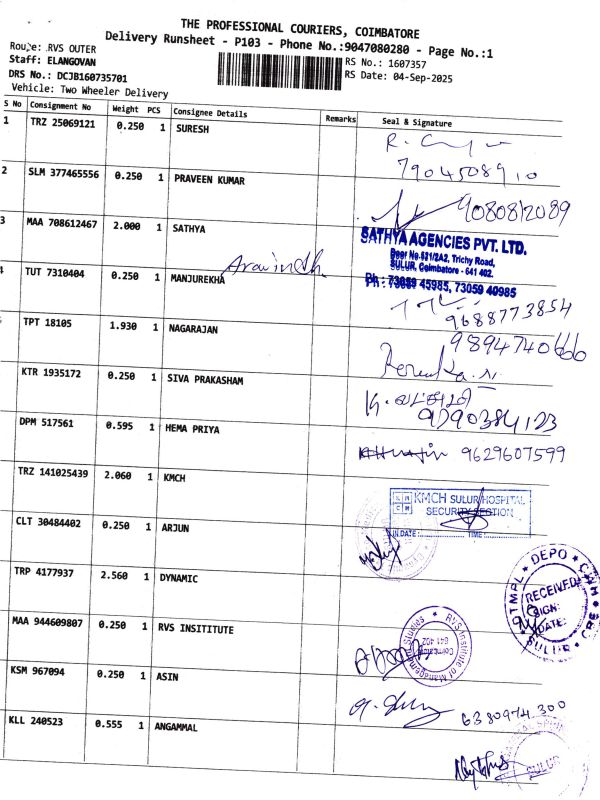 THE PROFESSIONAL COURIERS, COIMBATORE
Delivery Runsheet - P103 - Phone No.:9047080280 - Page No.:1
Route: .RVS OUTER
Staff: ELANGOVAN
RS No.: 1607357
DRS No.: DCJB160735701
RS Date: 04-Sep-2025
Vehicle: Two Wheeler Delivery
S No Consignment No Weight PCS Consignee Details Remarks Seal & Signature
1 TRZ 25069121 0.250 1 SURESH
7904508910
2 SLM 377465556 0.250 1 PRAVEEN KUMAR
9080812089
3 MAA 708612467 2.000 1 SATHYA
SATHYA AGENCIES PVT. LTD.
Door No.631/2A2, Trichy Road,
SULUR, Coimbatore - 641 402.
Ph : 73059 45985, 73059 40985
Aravindh.
4 TUT 7310404 0.250 1 MANJUREKHA
9688773854
TPT 18105 1.930 1 NAGARAJAN
9894740666
KTR 1935172 0.250 1 SIVA PRAKASHAM
Renuka.N
DPM 517561 0.595 1 HEMA PRIYA
9790384123
9629607599
TRZ 141025439 2.060 1 KMCH
KMCH SULUR HOSPITAL
SECURITY SECTION
IN DATE: TIME:
CLT 30484402 0.250 1 ARJUN
TRP 4177937 2.560 1 DYNAMIC
DTMPL DEPO
RECEIVED
SIGN:
DATE:
SULUR
MAA 944609807 0.250 1 RVS INSITITUTE
RVS Institute of Management Studies
Coimbatore
641 402
KSM 967094 0.250 1 ASIN
6380974300
KLL 240523 0.555 1 ANGAMMAL
SULUR